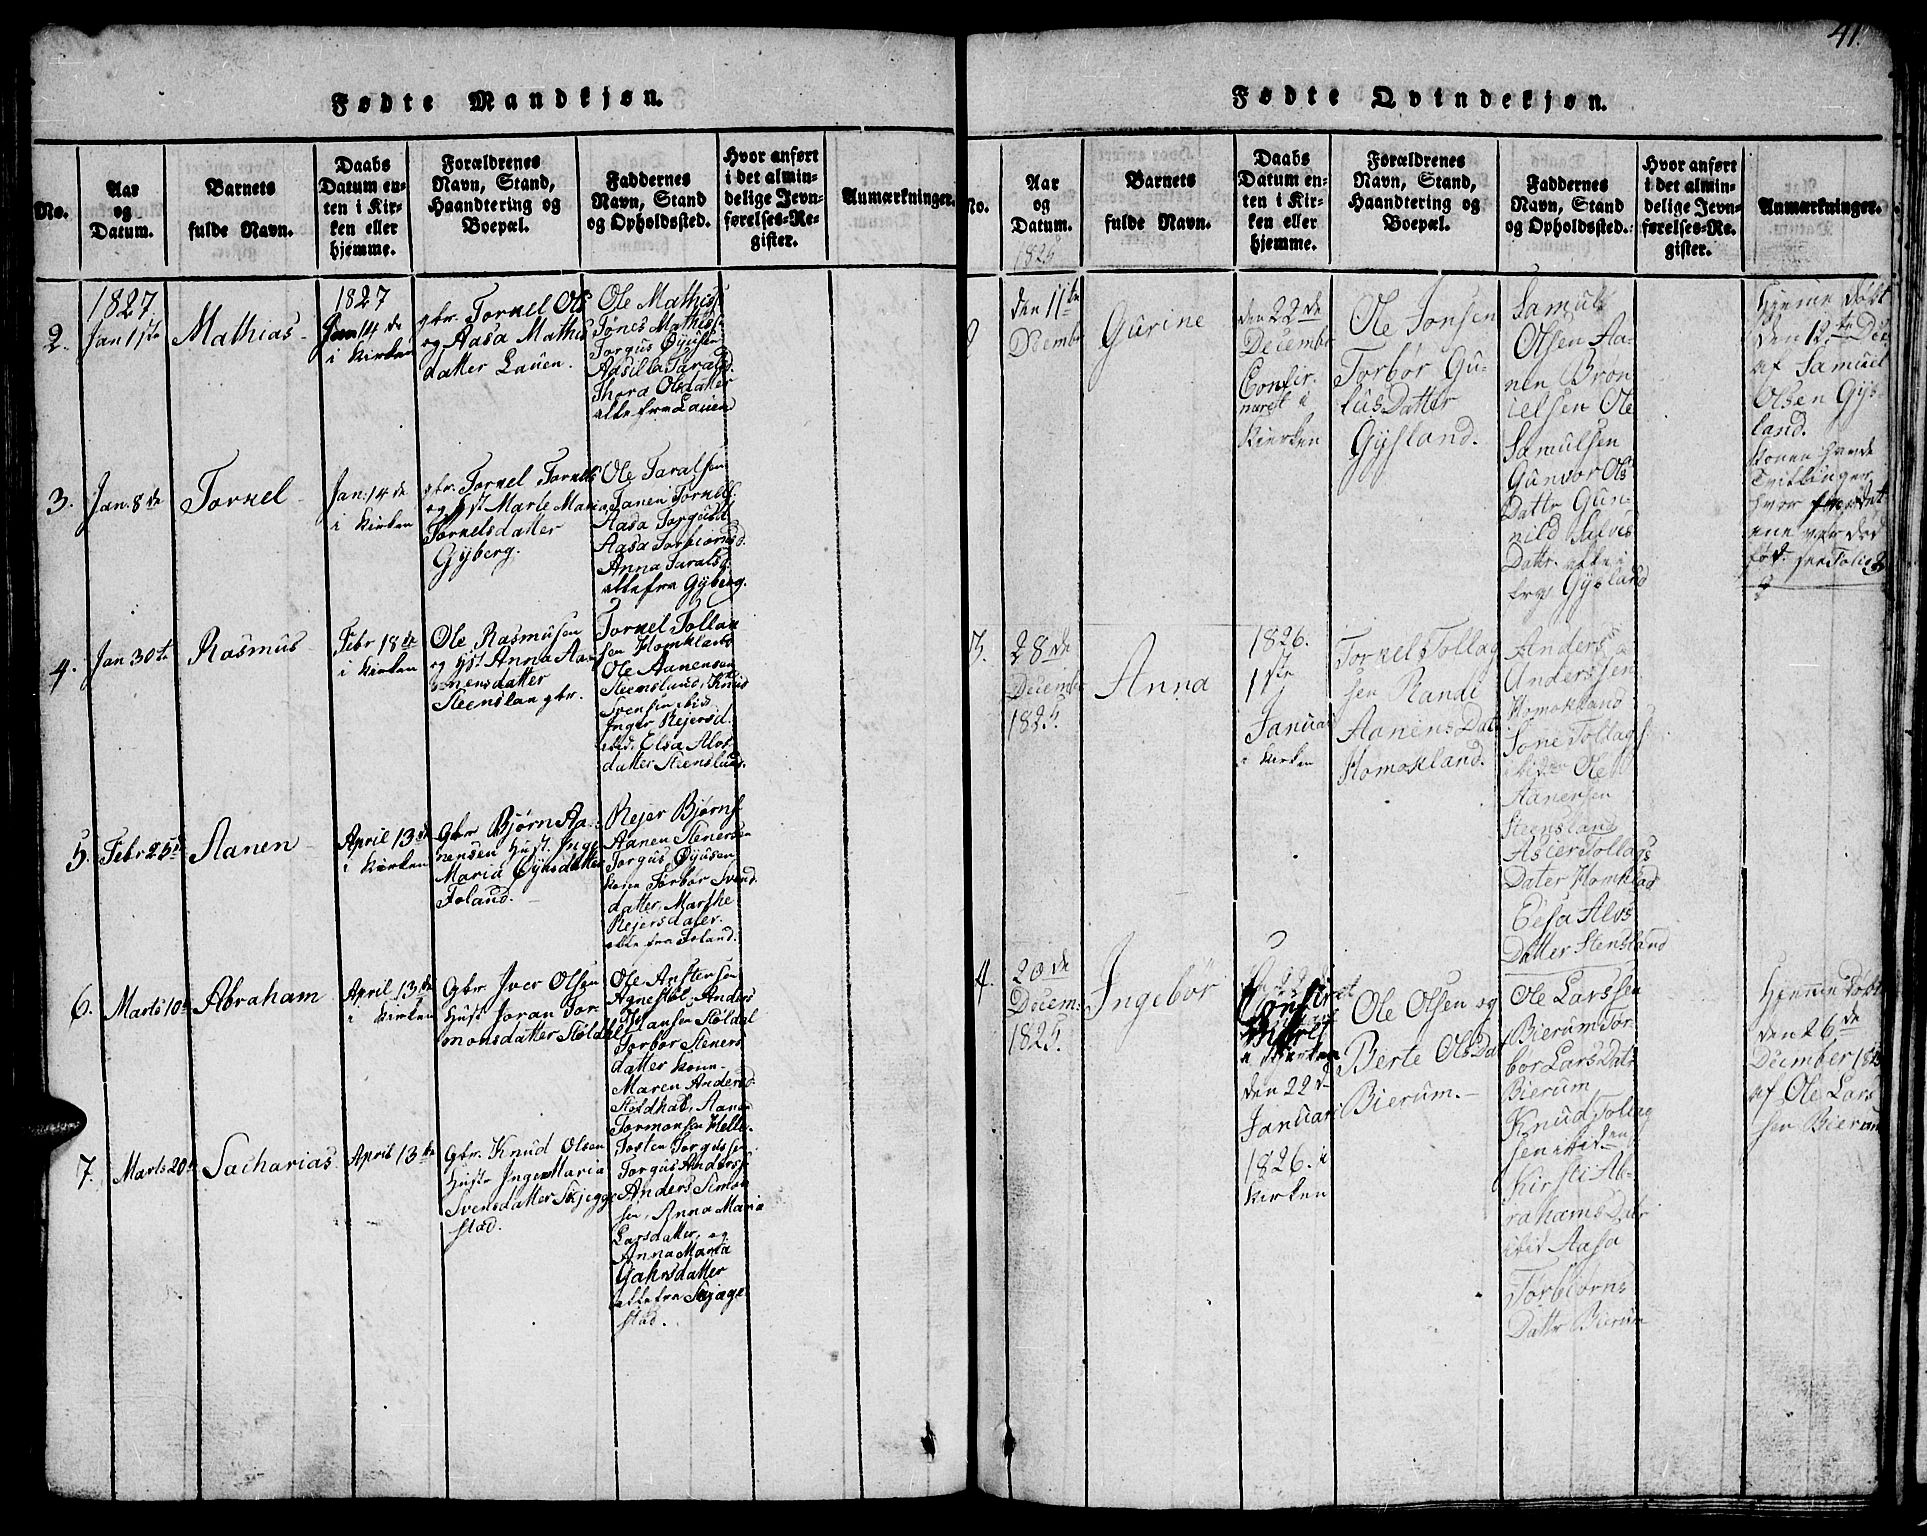 41.
Fødte Mandkjøn.
No.
Aar
og
Datum.
Barnets
fulde Navn.
Daabs
Datum en-
ten i Kir-
ken eller
hjemme.
Forældrenes
Navn, Stand,
Haandtering og
Boepæl.
Faddernes
Navn, Stand
og Opholdssted.
Hvor anført
i det almin-
delige Jevn-
førelses-Re-
gister.
Anmærkninger.
2.
1827
Jan 1ste
Mathias
1827
Jan 14de
i Kirken
gbr. Torkel Ols
og Aasa Mathis
datter Lauen.
Ole Mathiss
Tønes Mathiss
Torgus Øyusen
Aasilla Taralsd.
Thora Olsdatter
alle fra Lauen
3.
Jan. 8de
Torkel
Jan. 14de
i Kirken
gbr. Torkel Torkels
og Hst Marte Maria
Torkelsdatter
Gyberg.
Ole Taralsen
Aanen Torkels.
Aasa Torgusd.
Aasa Torbiornsd.
Anna Taralsd.
alle fra Gyberg.
4.
Jan 30te
Rasmus
Febr 18de
i Kirken
Ole Rasmusen
og Hst Anna Aan
nensdatter
Steensland gbr.
Torkel Tollak
sen Homkland
Ole Aanensen
Steensland, Knud
Svensen ibid
Inger Rejersd.
ibid. Elsa Alvs
datter Steensland.
5.
Febr 25de
Aanen
April 13de
i Kirken
Gbr Bjørn Aa-
nensen Hust. Inge
Maria Øyusdatter
Foland.
Rejer Bjørns
Aanen Stenersen
Torgus Øyusen
kone Torbor Svend
datter, Marthe
Rejersdater.
alle fra Foland.
6.
Marts 10de
Abraham
April 13de
i Kirken
Gbr Iver Olsen
Hust Joran Tor-
monsdatter Støldal
Ole Anstensen
Agnestøl, Anders
Hansen Støldal
Torbor Steners
datter kone
Maren Andersd.
Støldhal, Aanen
Tormonsen Helle.
7.
Marts 20de
Sacharias
April 13de
Gbr. Knud Olsen
Hustr Inger Maria
Svensdatter Skjegge
stad.
Tosten Torgussen
Torgus Anderss.
Anders Simon
sen, Anna Maria
Larsdatter, og
Anna Maria
Gahrsdatter
alle fra Skjæge
stad.
Fødte Qvindekjøn.
No.
Aar
og
Datum.
Barnets
fulde Navn.
Daabs
Datum en-
ten i Kir-
ken eller
hjemme.
Forældrenes
Navn, Stand,
Haandtering og
Boepæl.
Faddernes
Navn, Stand
og Opholdssted.
Hvor anført
i det almin-
delige Jevn-
førelses-Re-
gister.
Anmærkninger.
1825
den 11te
December
Gurine
den 22de
December
Confir-
meret i
Kierken
Ole Jonsen
Torbor Gu-
lusDatter
Gysland.
Samul
Olsen Aa-
nen Brøn
ielsen Ole
Samulsen
Gunvor Ols
Datter Gun
nild Salvis
Datter alle i
Gysland
Hjeme døbt
den 12te Dec
af Samuel
Olsen Gys-
land.
konen havde
Tvillinger
hvor
ene var død
fød. see Folie
3.
28de
December
1825.
Anna
1826.
1ste
Januari
i Kirken
Torkel Tollag
sen Randi
AanensDat
Homokland.
Anders
Anderssen
Homokland
Sone Tollags
ibid Ole
Aanensen
Steensland
Asier Tollags
Dater Homkland
Elsa Alvs
Datter Stensland
4.
20de
Decem.
1825.
Ingebor
i Kierken
den 22d
Januari
1826. i
Kirken
Ole Olsen og
Berte OlsDat
Bierum.
Ole Larssen
Bierum Tor
bor LarsDatr
Bierum
Knud Tollag
sen ibiden
Kirsti Ab-
rahamsDatr
ibid Aasa
Torbiorns
Datter Bierum
Hjemme døbt
den 26de
December 1825
af Ole Lars
sen Bierum